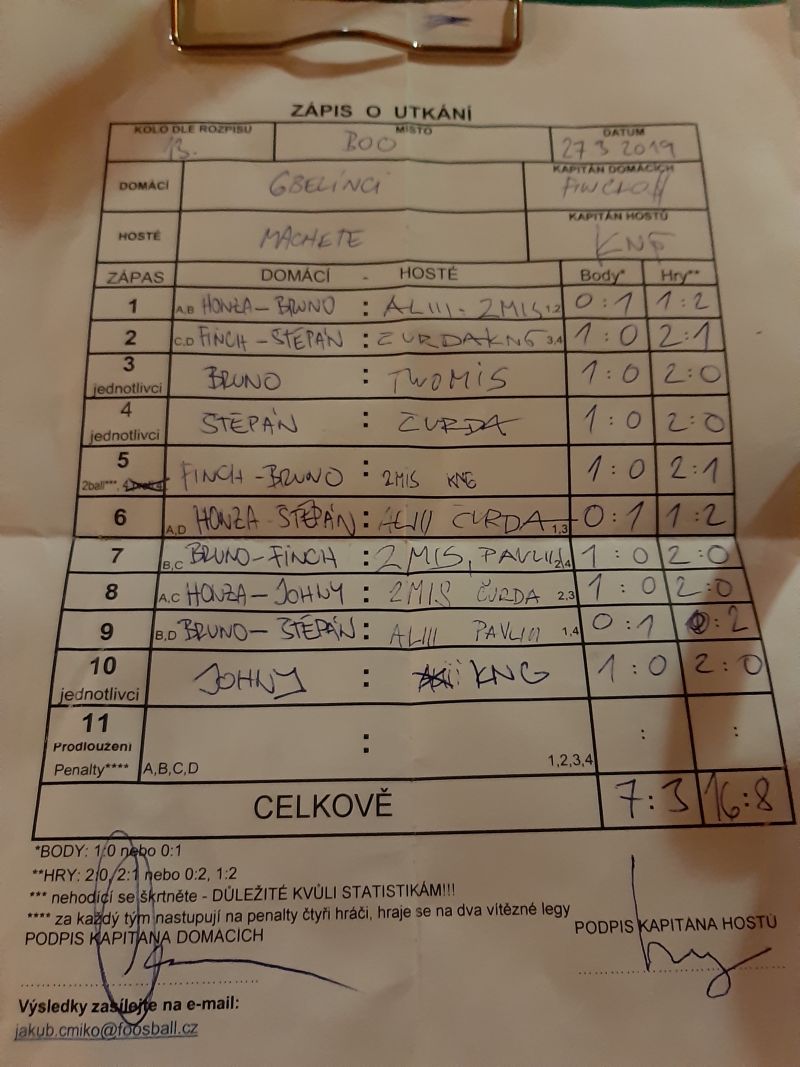 ZÁPIS O UTKÁNÍ
KOLO DLE ROZPISU MÍSTO DATUM
13. BOO 27 3 2019
DOMÁCÍ GBELÍNCI KAPITÁN DOMÁCÍCH
HOSTÉ MACHETE KAPITÁN HOSTŮ
ZÁPAS DOMÁCÍ - HOSTÉ Body* Hry**
1 A,B HONZA-BRUNO : ALIII-2MIS 1,2 0:1 1:2
2 C,D FINCH-ŠTĚPÁN : ČURDA KNG 3,4 1:0 2:1
3 jednotlivci BRUNO : TWOMIS 1:0 2:0
4 jednotlivci ŠTĚPÁN : ČURDA 1:0 2:0
5 2ball***, FINCH-BRUNO : 2MIS KNG 1:0 2:1
6 A,D HONZA-ŠTĚPÁN : ALIII ČURDA 1,3 0:1 1:2
7 B,C BRUNO-FINCH : 2MIS, PAVLIII 2,4 1:0 2:0
8 A,C HONZA-JOHNY : 2MIS ČURDA 2,3 1:0 2:0
9 B,D BRUNO-ŠTĚPÁN : ALIII PAVLIII 1,4 0:1 0:2
10 jednotlivci JOHNY : KNG 1:0 2:0
11 Prodloužení
Penalty**** A,B,C,D : 1,2,3,4 : :
CELKOVĚ 7:3 16:8
*BODY: 1:0 nebo 0:1
**HRY: 2:0, 2:1 nebo 0:2, 1:2
*** nehodící se škrtněte - DŮLEŽITÉ KVŮLI STATISTIKÁM!!!
**** za každý tým nastupují na penalty čtyři hráči, hraje se na dva vítězné legy
PODPIS KAPITÁNA DOMÁCÍCH PODPIS KAPITÁNA HOSTŮ
Výsledky zasílejte na e-mail:
jakub.cmiko@foosball.cz